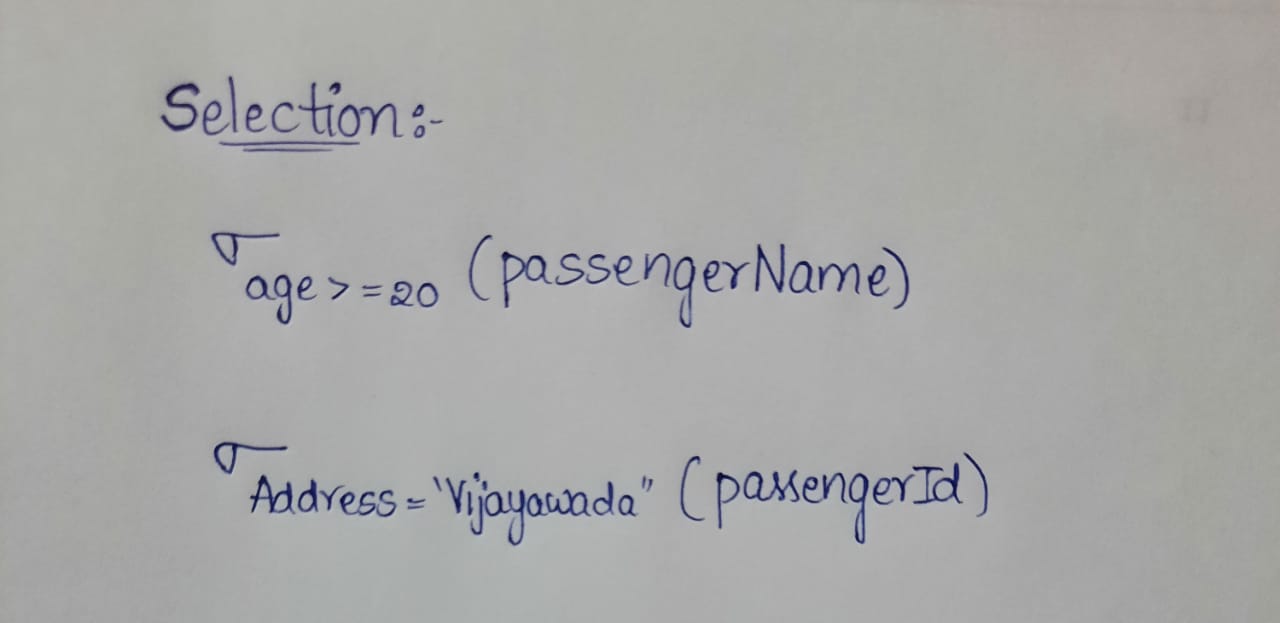 Selection:-
σ age >= 20 (passengerName)
σ Address = "Vijayawada" (passengerId)